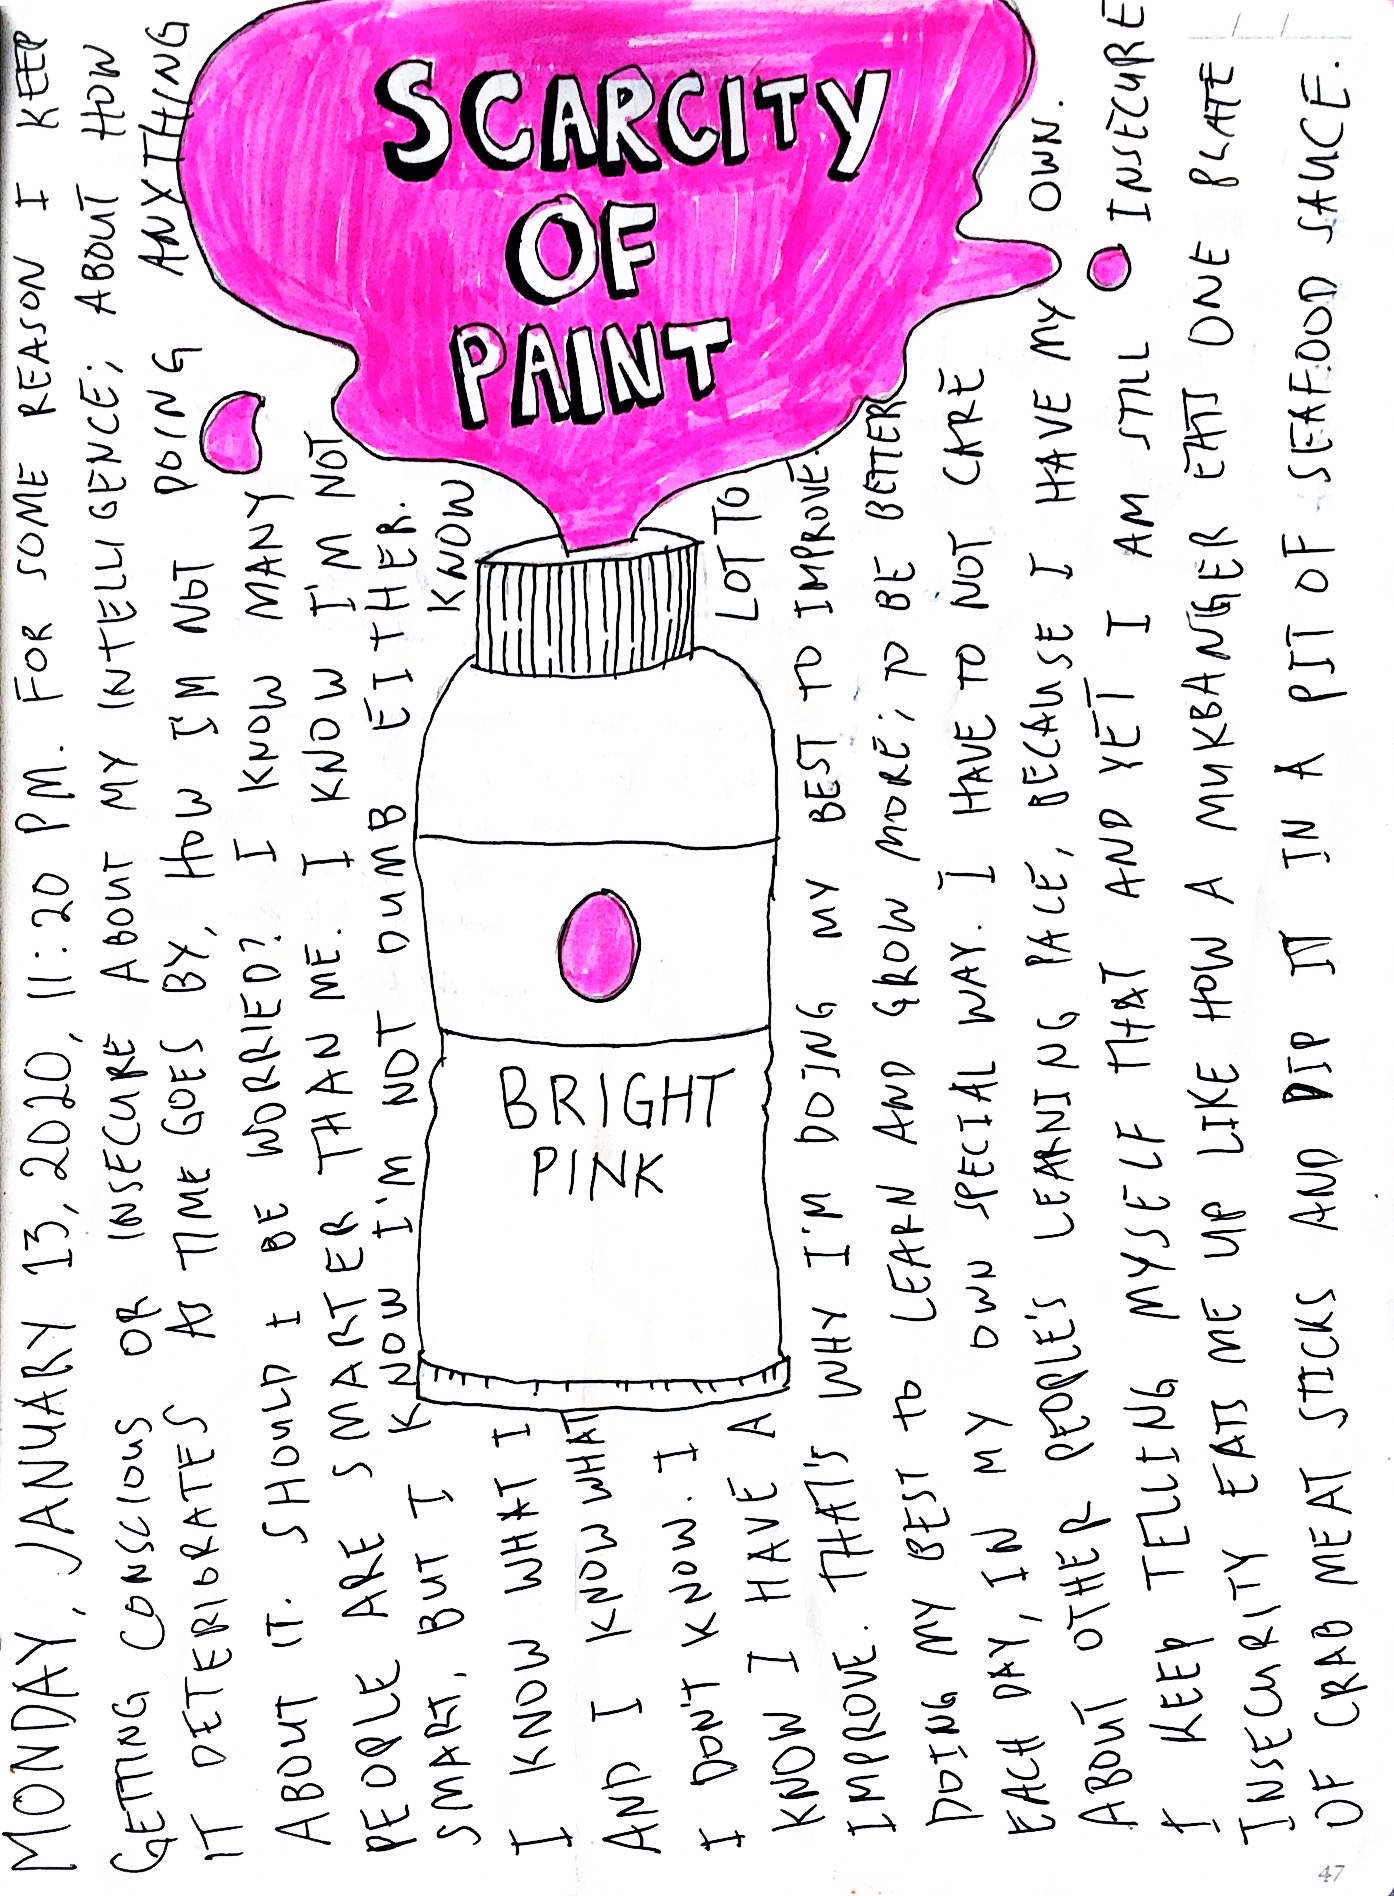 SCARCITY
OF
PAINT
BRIGHT
PINK
MONDAY, JANUARY 13, 2020, 11:20 PM. FOR SOME REASON I KEEP
GETTING CONSCIOUS OR INSECURE ABOUT MY INTELLIGENCE; ABOUT HOW
IT DETERIORATES AS TIME GOES BY, HOW I'M NOT DOING ANYTHING
ABOUT IT. SHOULD I BE WORRIED? I KNOW MANY
PEOPLE ARE SMARTER THAN ME. I KNOW I'M NOT
SMART, BUT I KNOW I'M NOT DUMB EITHER.
I KNOW WHAT I KNOW
AND I KNOW WHAT
I DON'T KNOW. I
KNOW I HAVE A LOT TO
IMPROVE. THAT'S WHY I'M DOING MY BEST TO IMPROVE.
DOING MY BEST TO LEARN AND GROW MORE; TO BE BETTER
EACH DAY, IN MY OWN SPECIAL WAY. I HAVE TO NOT CARE
ABOUT OTHER PEOPLE'S LEARNING PACE, BECAUSE I HAVE MY OWN.
I KEEP TELLING MYSELF THAT AND YET I AM STILL INSECURE
INSECURITY EATS ME UP LIKE HOW A MUKBANGER EATS ONE PLATE
OF CRAB MEAT STICKS AND DIP IT IN A PIT OF SEAFOOD SAUCE.
47